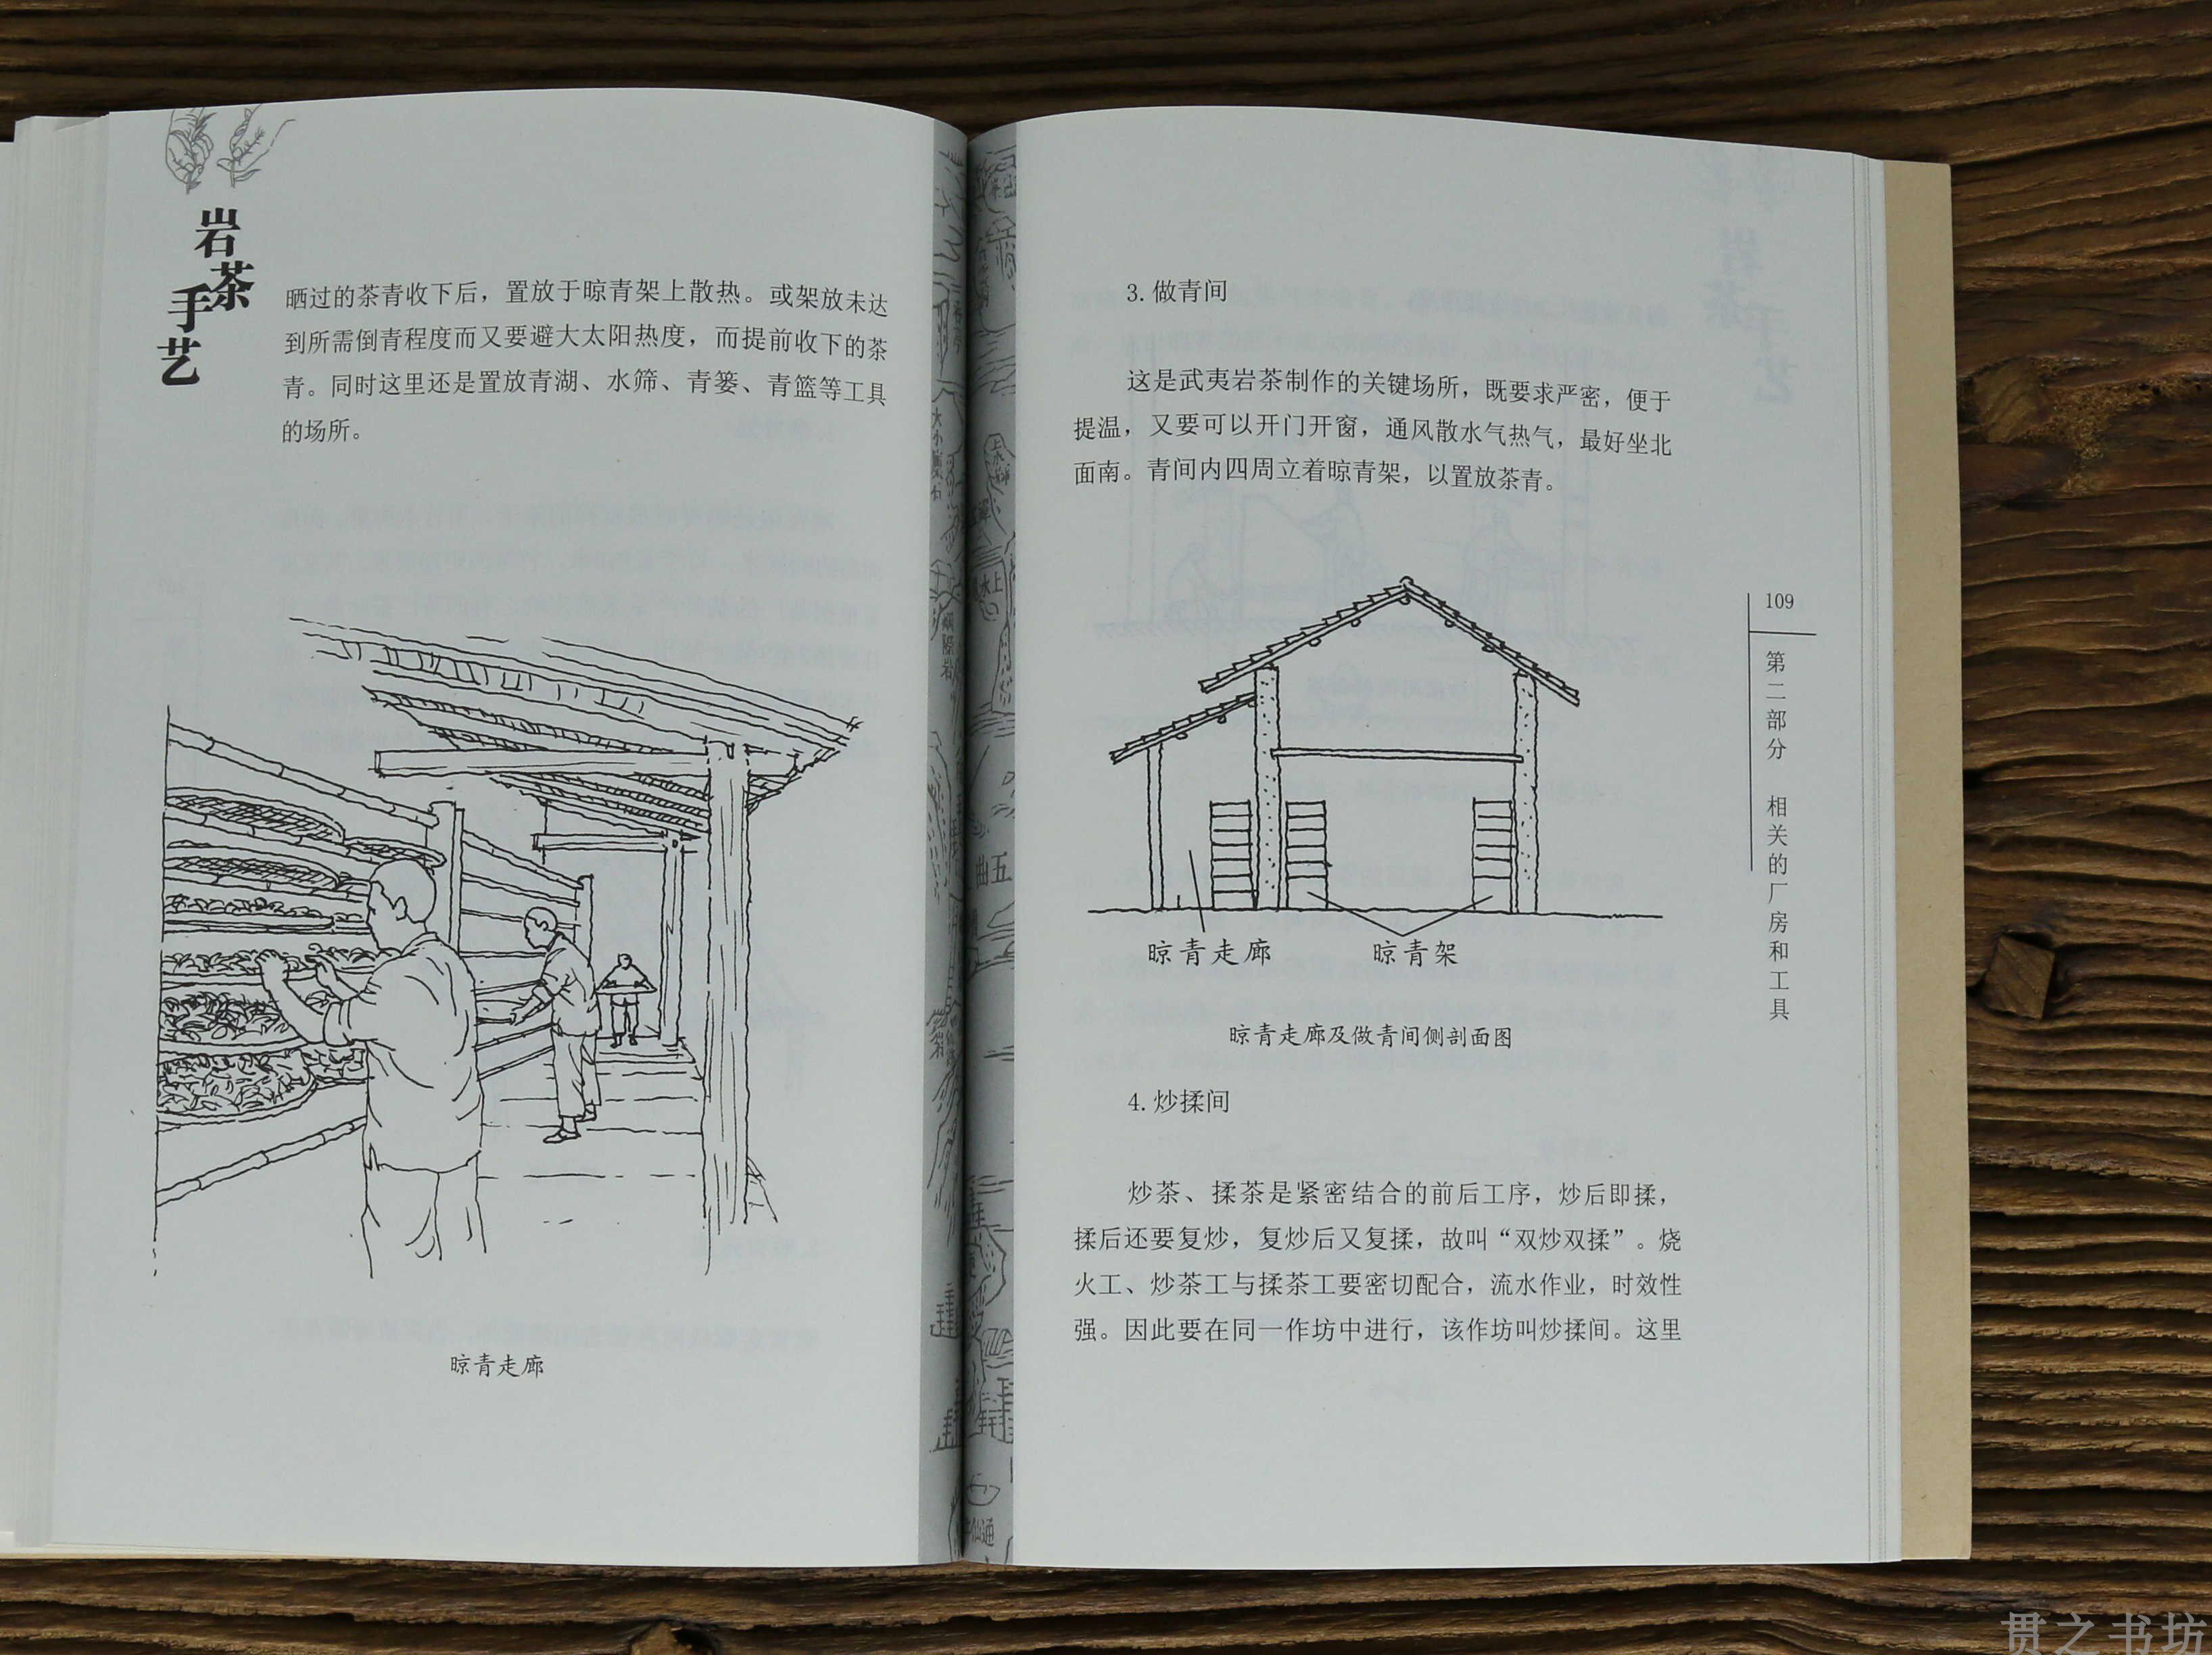 岩茶手艺
晒过的茶青收下后，置放于晾青架上散热。或架放未达
到所需倒青程度而又要避大太阳热度，而提前收下的茶
青。同时这里还是置放青湖、水筛、青篓、青篮等工具
的场所。
晾青走廊
3. 做青间
这是武夷岩茶制作的关键场所，既要求严密，便于
提温，又要可以开门开窗，通风散水气热气，最好坐北
面南。青间内四周立着晾青架，以置放茶青。
晾青走廊
晾青架
晾青走廊及做青间侧剖面图
4. 炒揉间
炒茶、揉茶是紧密结合的前后工序，炒后即揉，
揉后还要复炒，复炒后又复揉，故叫“双炒双揉”。烧
火工、炒茶工与揉茶工要密切配合，流水作业，时效性
强。因此要在同一作坊中进行，该作坊叫炒揉间。这里
109
第二部分 相关的厂房和工具
贯之书坊